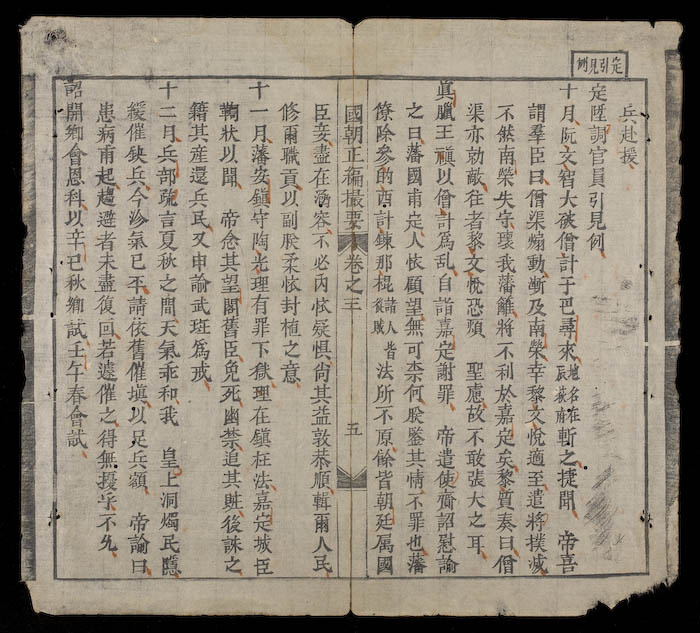 定引見例
兵赴援
定陞調官員引見例
十月阮文智大破僧計于巴尋來地名在辰荻府斬之捷聞　帝喜
謂羣臣曰僧渠煽動漸及南榮幸黎文悅適至遣將撲滅
不然南榮失守壞我藩籬將不利於嘉定矣黎質奏曰僧
渠亦勍敵往者黎文悅恐煩　聖慮故不敢張大之耳
真臘王禛以僧計爲乱自詣嘉定謝罪　帝遣使齎詔慰諭
之曰藩國甫定人怀顧望無可柰何朕鑒其情不罪也藩
僚除參的西計鍊那棍諸人從賊皆法所不原餘皆朝廷属國
國朝正編撮要　卷之三　五
臣妾盡在涵容不必內怀疑惧尚其益敦恭順輯爾人民
修爾職貢以副朕柔怀封植之意
十一月藩安鎮守陶光理有罪下獄理在鎮枉法嘉定城臣
鞫狀以聞　帝念其望閣舊臣免死幽禁追其賍後誅之
籍其産還兵民又申諭武班爲戒
十二月兵部疏言夏秋之間天氣乖和我　皇上洞燭民隱
緩催缺兵今沴氣已平請依舊催填以足兵額　帝諭曰
患病甫起趨避者未盡復回若遽催之得無擾乎不允
詔開鄉會恩科以辛巳秋鄉試壬午春會試